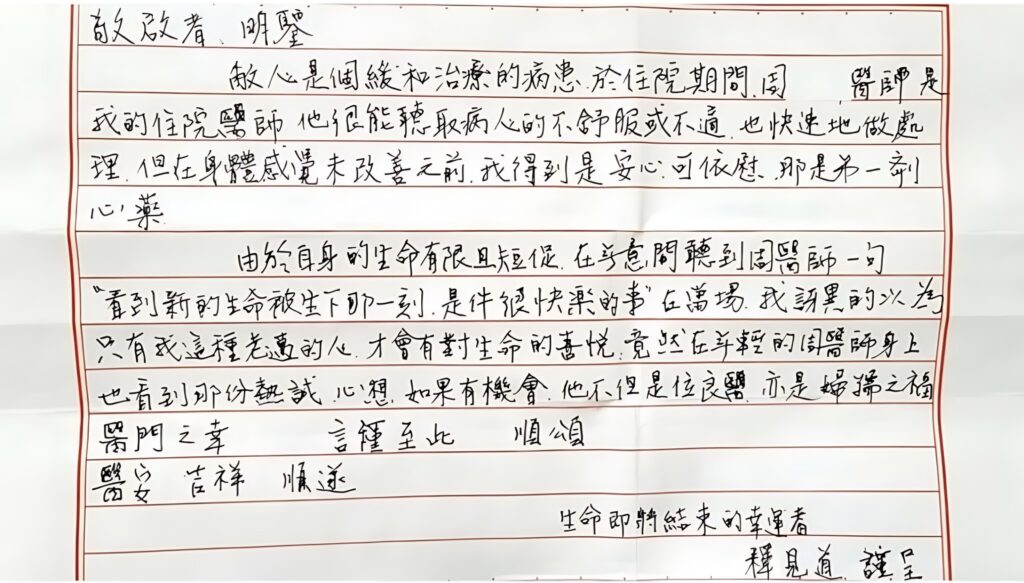 敬啟者、明鑒
敝人是個緩和治療的病患.於住院期間.周 醫師是
我的住院醫師 他很能聽取病人的不舒服或不適.也快速地做處
理.但在身體感覺未改善之前.我得到是安心.可依慰.那是第一劑
心藥.
由於自身的生命有限且短促.在無意間聽到周醫師一句
"看到新的生命被生下那一刻.是件很快樂的事"在當場.我訝異的以為
只有我這種老邁的人.才會有對生命的喜悅.竟然在年輕的周醫師身上
也看到那份熱誠.心想.如果有機會.他不但是位良醫.亦是婦孺之福
醫門之幸 言種至此 順頌
醫安 吉祥 順遂
生命即將結束的幸運者
釋見道.謹呈